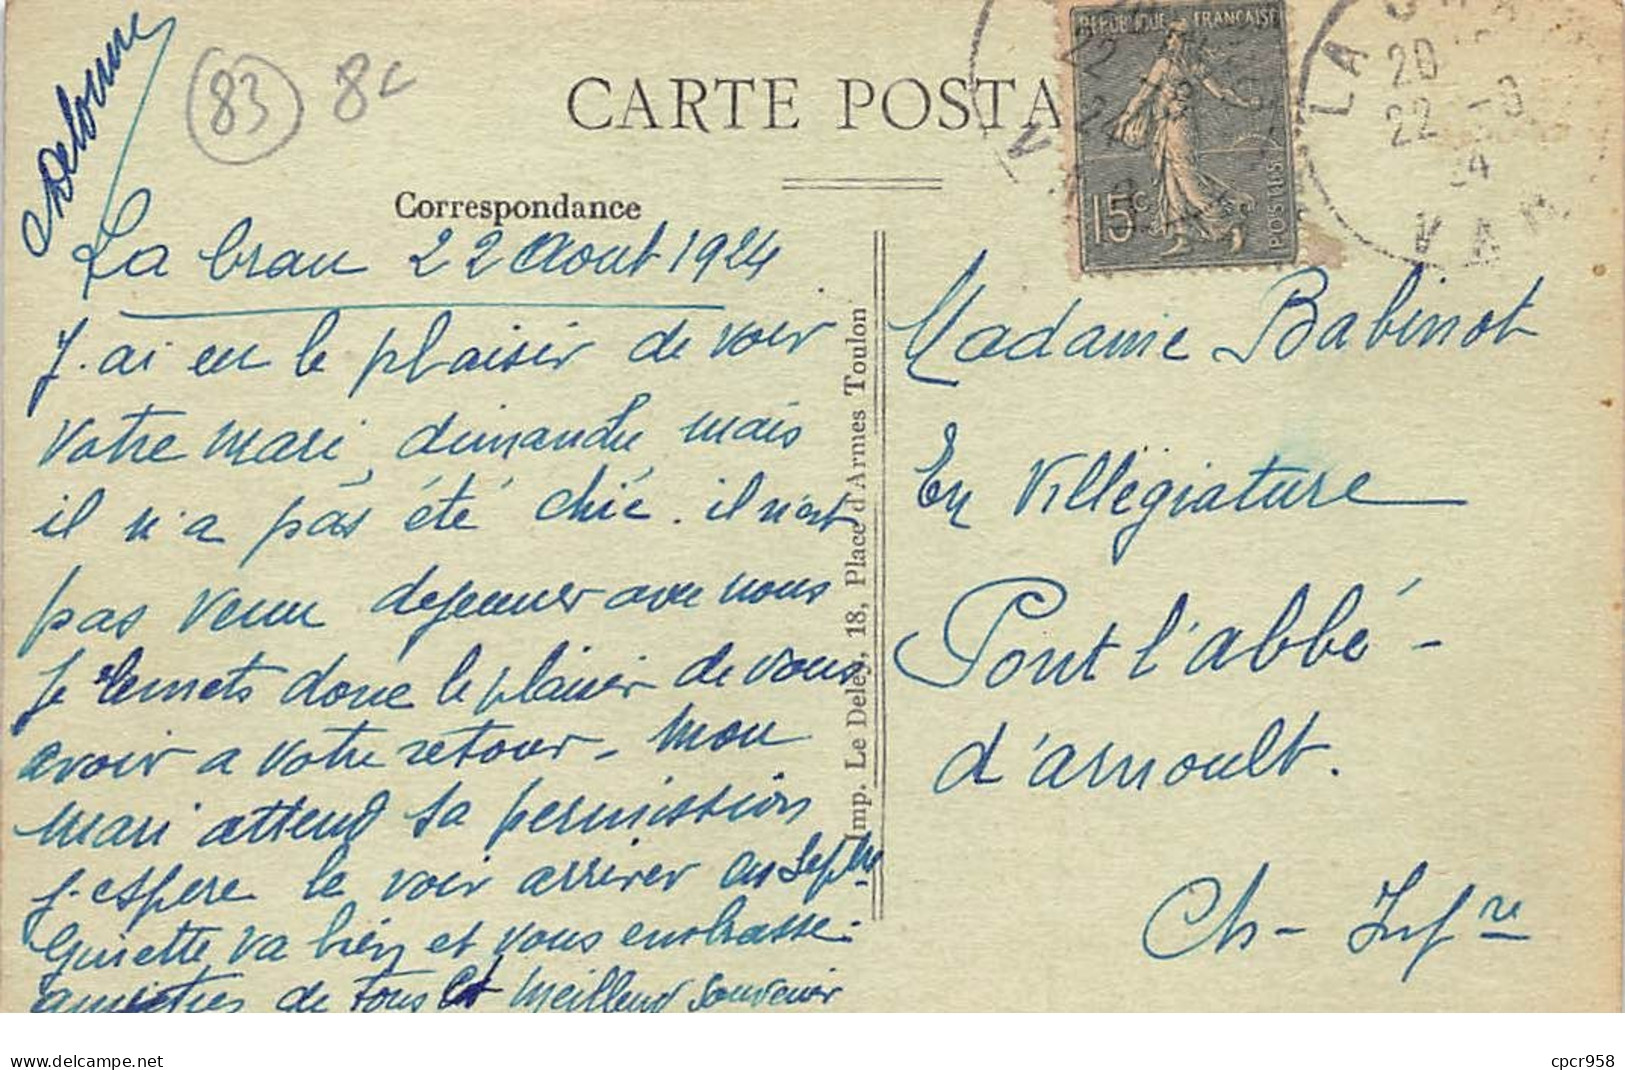 Delorme
83 8c
CARTE POSTA
RÉPUBLIQUE FRANÇAISE
15c
POSTES
22
24
LA CRAU
20
22 -8
24
VAR
Correspondance
La Crau 22 Aout 1924
J'ai eu le plaisir de voir
votre mari, dimanche mais
il n'a pas été chic. il n'est
pas venu dejeuner avec nous
Je remets donc le plaisir de vous
avoir a votre retour - Mon
mari attend sa permission
j'espere le voir arriver en Septbre
Ginette va bien et vous embrasse.
amitiés de tous et meilleur souvenir
Imp. Le Deley, 18, Place d'Armes Toulon
Madame Babinot
En Villégiature
Pont l'abbé -
d'arnoult.
Ch - Infre
delcampe.net
cpcr958